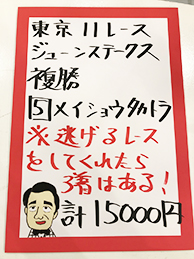 東京11レース
ジューンステークス
複勝
5メイショウタカトラ
※逃げるレース
をしてくれたら
3着はある!
計15000円